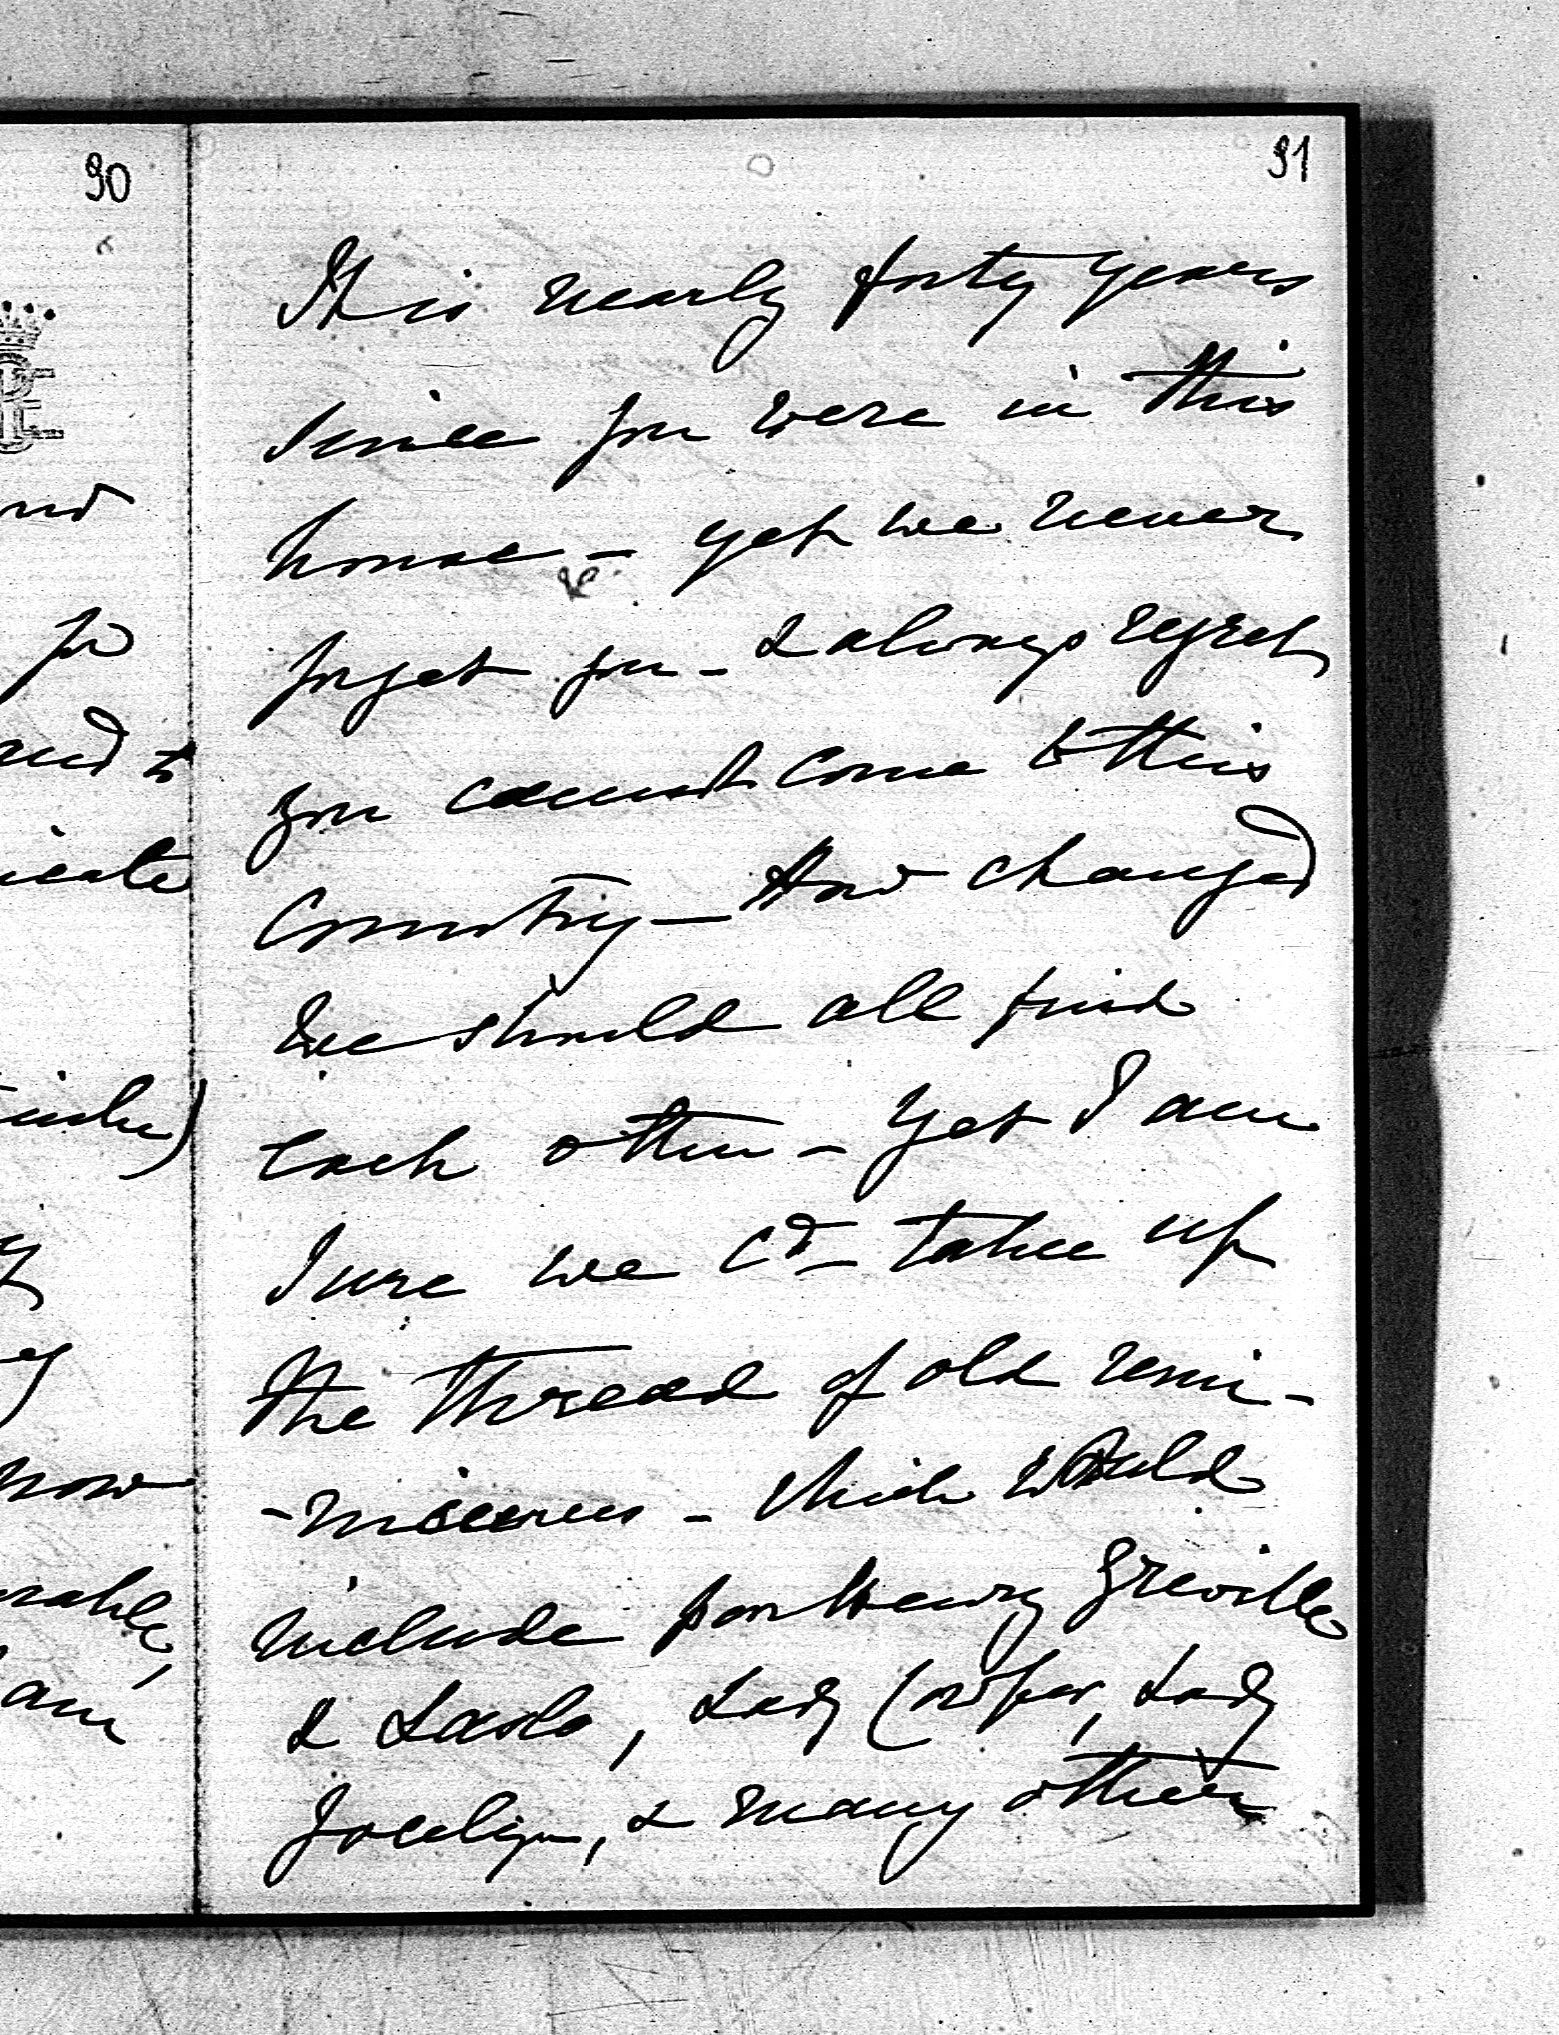 90
91
It is nearly forty years
since you were in this
house - yet we never
forget you - & always regret
you cannot come to this
Country - How changed
we should all find
each other - yet I am
sure we cd take up
the thread of old remi-
-niscences - which would
include poor Henry Greville
& Lady Cowper, Lady
Jocelyn, & many others